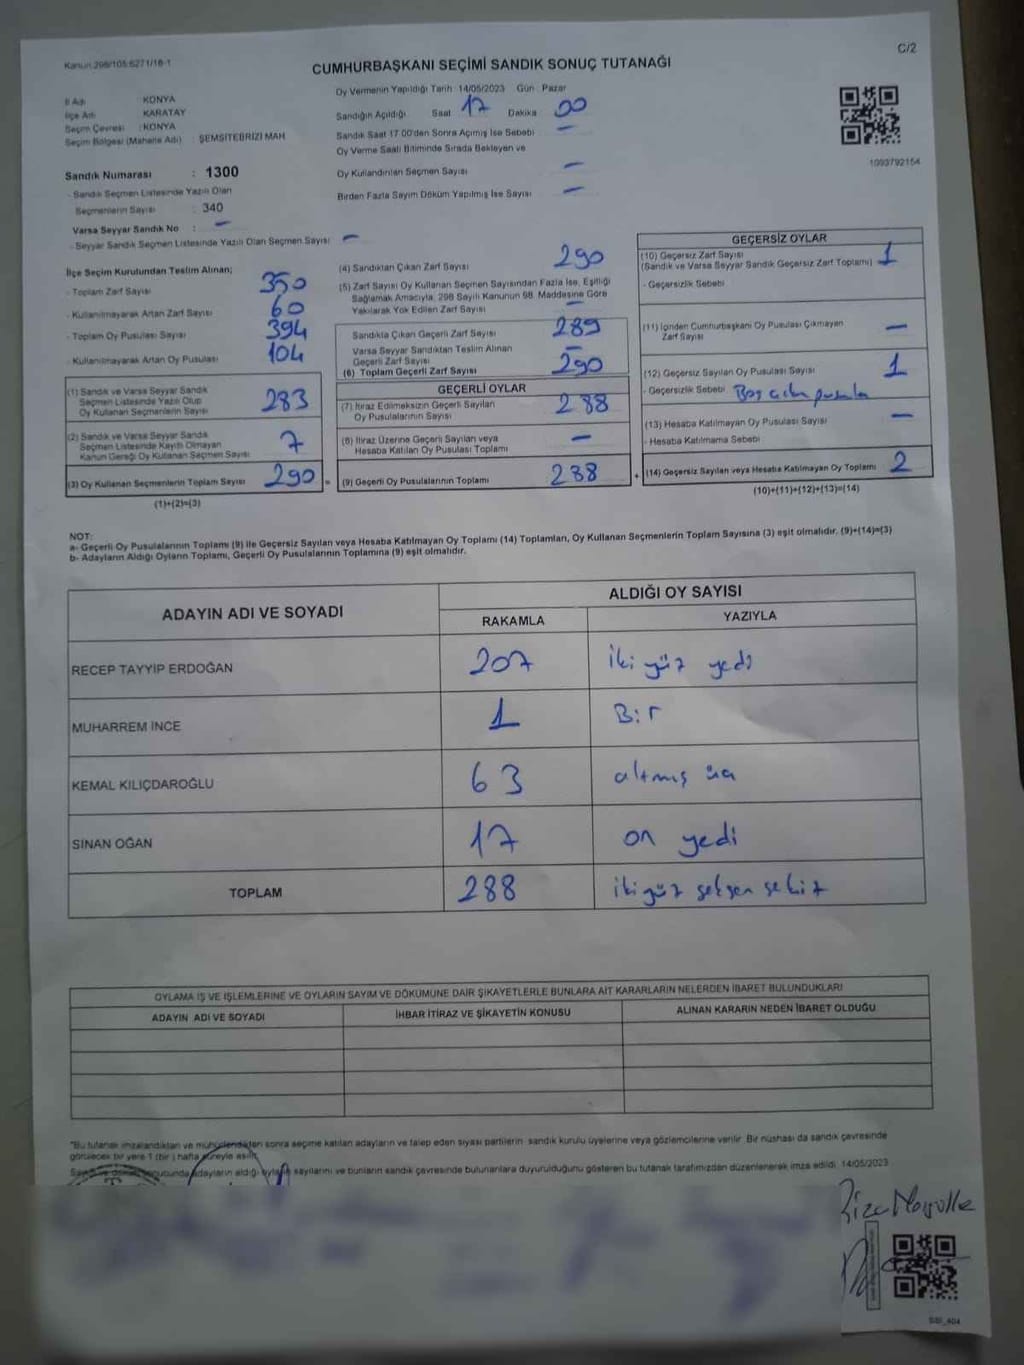 Kanun 298/105.6271/18-1
C/2
CUMHURBAŞKANI SEÇİMİ SANDIK SONUÇ TUTANAĞI
İl Adı KONYA
İlçe Adı KARATAY
Seçim Çevresi : KONYA
Seçim Bölgesi (Mahalle Adı) ŞEMSİTEBRİZİ MAH
Sandık Numarası : 1300
- Sandık Seçmen Listesinde Yazılı Olan
Seçmenlerin Sayısı : 340
Varsa Seyyar Sandık No : -
- Seyyar Sandık Seçmen Listesinde Yazılı Olan Seçmen Sayısı -
Oy Vermenin Yapıldığı Tarih 14/05/2023 Gün Pazar
Sandığın Açıldığı Saat 17 Dakika 00
Sandık Saat 17.00'dan Sonra Açımış İse Sebebi -
Oy Verme Saati Bitiminde Sırada Bekleyen ve
Oy Kullandırılan Seçmen Sayısı -
Birden Fazla Sayım Döküm Yapılmış İse Sayısı -
1093792154
İlçe Seçim Kurulundan Teslim Alınan;
- Toplam Zarf Sayısı 350
- Kullanılmayarak Artan Zarf Sayısı 60
- Toplam Oy Pusulası Sayısı 394
- Kullanılmayarak Artan Oy Pusulası 104
(1) Sandık ve Varsa Seyyar Sandık
Seçmen Listesinde Yazılı Olup
Oy Kullanan Seçmenlerin Sayısı 283
(2) Sandık ve Varsa Seyyar Sandık
Seçmen Listesinde Kayıtlı Olmayan
Kanun Gereği Oy Kullanan Seçmen Sayısı 7
(3) Oy Kullanan Seçmenlerin Toplam Sayısı 290 =
(1)+(2)=(3)
(4) Sandıktan Çıkan Zarf Sayısı 290
(5) Zarf Sayısı Oy Kullanan Seçmen Sayısından Fazla İse, Eşitliği
Sağlamak Amacıyla, 298 Sayılı Kanunun 98. Maddesine Göre
Yakılarak Yok Edilen Zarf Sayısı -
Sandıkta Çıkan Geçerli Zarf Sayısı 289
Varsa Seyyar Sandıktan Teslim Alınan
Geçerli Zarf Sayısı -
(6) Toplam Geçerli Zarf Sayısı 290
GEÇERLİ OYLAR
(7) İtiraz Edilmeksizin Geçerli Sayılan
Oy Pusulalarının Sayısı 288
(8) İtiraz Üzerine Geçerli Sayılan veya
Hesaba Katılan Oy Pusulası Toplamı -
(9) Geçerli Oy Pusulalarının Toplamı 288 +
GEÇERSİZ OYLAR
(10) Geçersiz Zarf Sayısı
(Sandık ve Varsa Seyyar Sandık Geçersiz Zarf Toplamı) 1
- Geçersizlik Sebebi
(11) İçinden Cumhurbaşkanı Oy Pusulası Çıkmayan
Zarf Sayısı -
(12) Geçersiz Sayılan Oy Pusulası Sayısı 1
- Geçersizlik Sebebi Boş pusula
(13) Hesaba Katılmayan Oy Pusulası Sayısı -
- Hesaba Katılmama Sebebi
(14) Geçersiz Sayılan veya Hesaba Katılmayan Oy Toplamı 2
(10)+(11)+(12)+(13)=(14)
NOT:
a- Geçerli Oy Pusulalarının Toplamı (9) ile Geçersiz Sayılan veya Hesaba Katılmayan Oy Toplamı (14) Toplamları, Oy Kullanan Seçmenlerin Toplam Sayısına (3) eşit olmalıdır. (9)+(14)=(3)
b- Adayların Aldığı Oyların Toplamı, Geçerli Oy Pusulalarının Toplamına (9) eşit olmalıdır.
ADAYIN ADI VE SOYADI ALDIĞI OY SAYISI
RAKAMLA YAZIYLA
RECEP TAYYİP ERDOĞAN 207 iki yüz yedi
MUHARREM İNCE 1 Bir
KEMAL KILIÇDAROĞLU 63 altmış üç
SİNAN OĞAN 17 on yedi
TOPLAM 288 iki yüz seksen sekiz
OYLAMA İŞ VE İŞLEMLERİNE VE OYLARIN SAYIM VE DÖKÜMÜNE DAİR ŞİKAYETLERLE BUNLARA AİT KARARLARIN NELERDEN İBARET BULUNDUKLARI
ADAYIN ADI VE SOYADI İHBAR İTİRAZ VE ŞİKAYETİN KONUSU ALINAN KARARIN NEDEN İBARET OLDUĞU
"Bu tutanak imzalandıktan ve mühürlendikten sonra seçime katılan adayların ve talep eden siyasi partilerin sandık kurulu üyelerine veya gözlemcilerine verilir. Bir nüshası da sandık çevresinde
görülecek bir yere 1 (bir) hafta süreyle asılır.
adayların aldığı oyların sayılarını ve bunların sandık çevresinde bulunanlara duyurulduğunu gösteren bu tutanak tarafımızdan düzenlenerek imza edildi. 14/05/2023